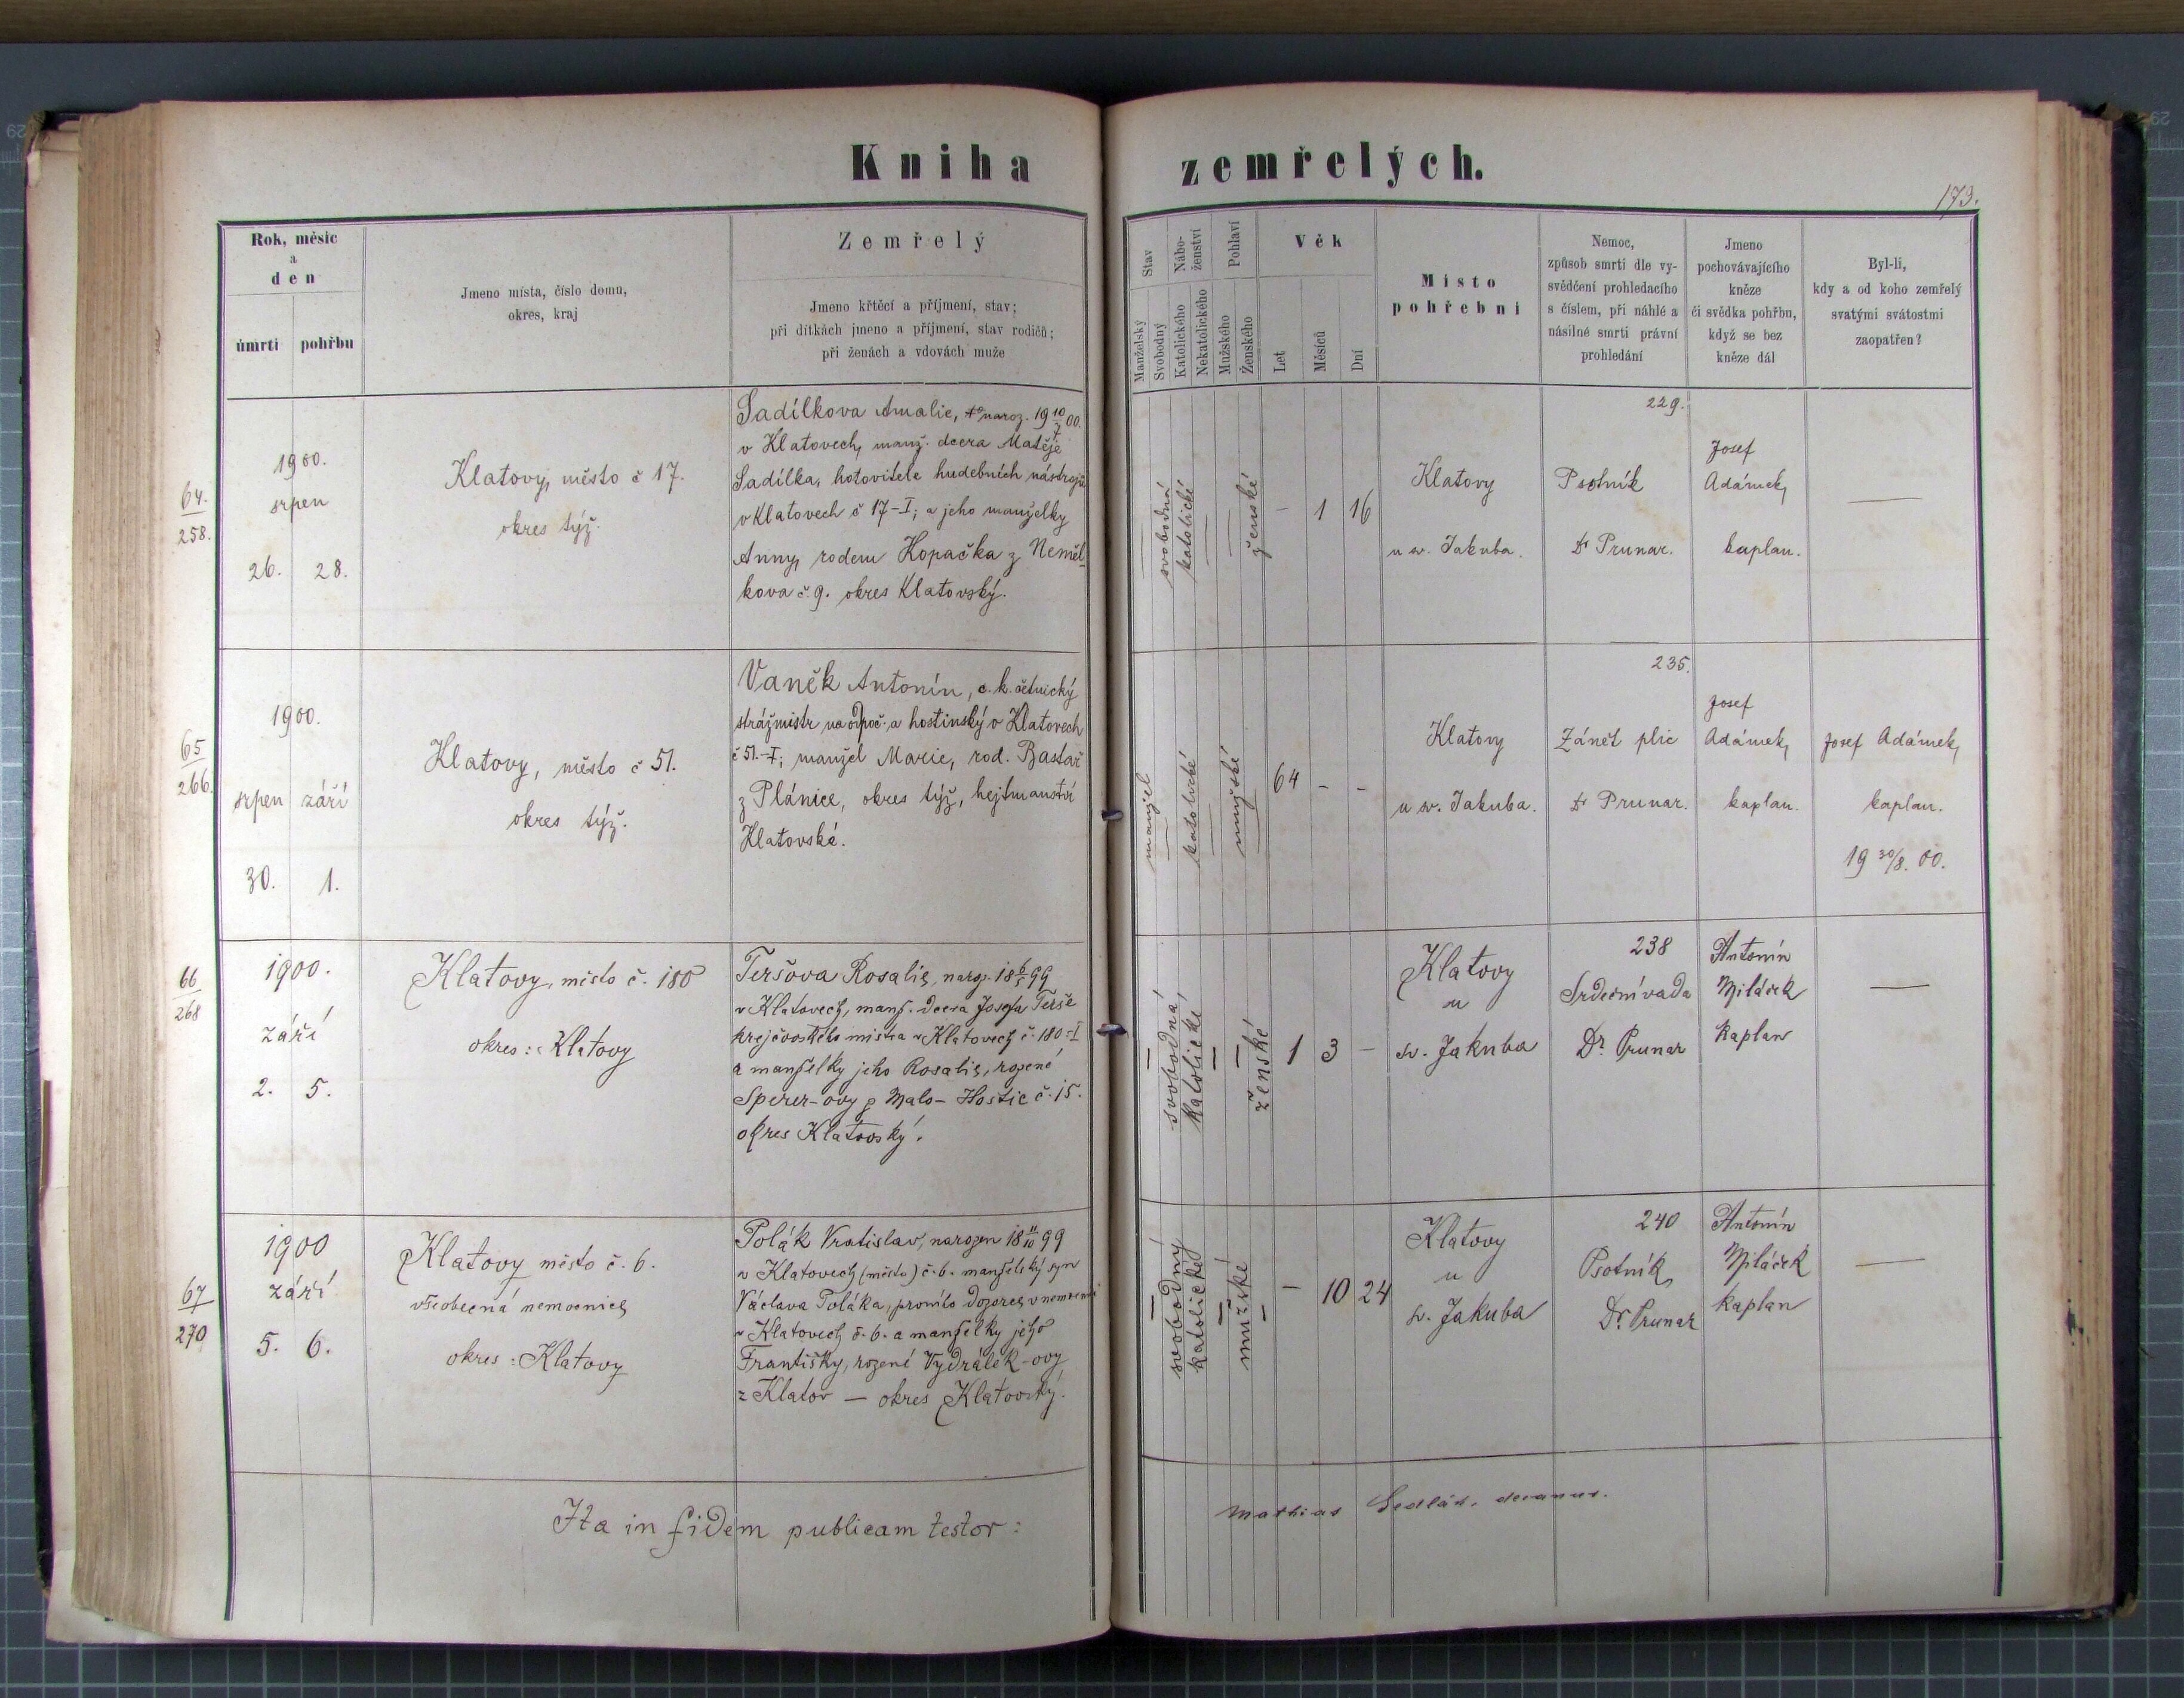 Kniha zemřelých.
173.
Rok, měsíc
a
den
úmrtí pohřbu
Jmeno místa, číslo domu,
okres, kraj
Zemřelý
Jmeno křtěcí a příjmení, stav;
při dítkách jmeno a příjmení, stav rodičů;
při ženách a vdovách muže
Stav
Manželský
Svobodný
Nábo-
ženství
Katolického
Nekatolického
Pohlaví
Mužského
Ženského
Věk
Let
Měsíců
Dní
Místo
pohřební
Nemoc,
způsob smrti dle vy-
svědčení prohledacího
s číslem, při náhlé a
násilné smrti právní
prohledání
Jmeno
pochovávajícího
kněze
či svědka pohřbu,
když se bez
kněze dál
Byl-li,
kdy a od koho zemřelý
svatými svátostmi
zaopatřen?
64.
258.
1900.
srpen
26. 28.
Klatovy, město č 17.
okres týž.
Sadílkova Amalie, naroz. 19 10/7 00.
v Klatovech, manž. dcera Matěje
Sadílka, hotovitele hudebních nástrojů
v Klatovech č 17-I; a jeho manželky
Anny, rodem Kopačka z Neměl-
kova č. 9. okres Klatovský.
svobodná
katolické
ženské
- 1 16
Klatovy
u sv. Jakuba.
229.
Psotník
Dr Prunar.
Josef
Adámek,
kaplan.
—
65
266.
1900.
srpen září
30. 1.
Klatovy, město č 51.
okres týž.
Vaněk Antonín, c. k. četnický
strážmistr na odpoč. a hostinský v Klatovech
č 51.-I; manžel Marie, rod. Bastař
z Plánice, okres týž, hejtmanství
Klatovské.
manžel
katolické
mužské
64 - -
Klatovy
u sv. Jakuba.
235.
Zánět plic
Dr Prunar.
Josef
Adámek,
kaplan.
Josef Adámek,
kaplan.
19 30/8. 00.
66
268
1900.
září
2. 5.
Klatovy, město č. 180
okres: Klatovy
Teršova Rosalie, naroz. 18 6/5 99
v Klatovech, manž. dcera Josefa Terše
krejčovského mistra v Klatovech č. 180-I
a manželky jeho Rosalie, rozené
Sperer-ovy z Malo-Hostic č. 15.
okres Klatovský.
svobodná
katolické
ženské
1 3 -
Klatovy
u
sv. Jakuba
238
Srdeční vada
Dr. Prunar
Antonín
Miláček
kaplan
—
67
270
1900
září
5. 6.
Klatovy město č. 6.
všeobecná nemocnice
okres: Klatovy
Polák Vratislav, narozen 18 11/10 99
v Klatovech (město) č. 6. manželský syn
Václava Poláka, prvního dozorce v nemocnici
v Klatovech č. 6. a manželky jeho
Františky, rozené Vydrálek-ovy
z Klatov — okres Klatovský.
svobodný
katolické
mužské
- 10 24
Klatovy
u
sv. Jakuba
240
Psotník
Dr. Prunar
Antonín
Miláček
kaplan
—
Ita in fidem publicam testor: Mathias Sedlák, decanus.